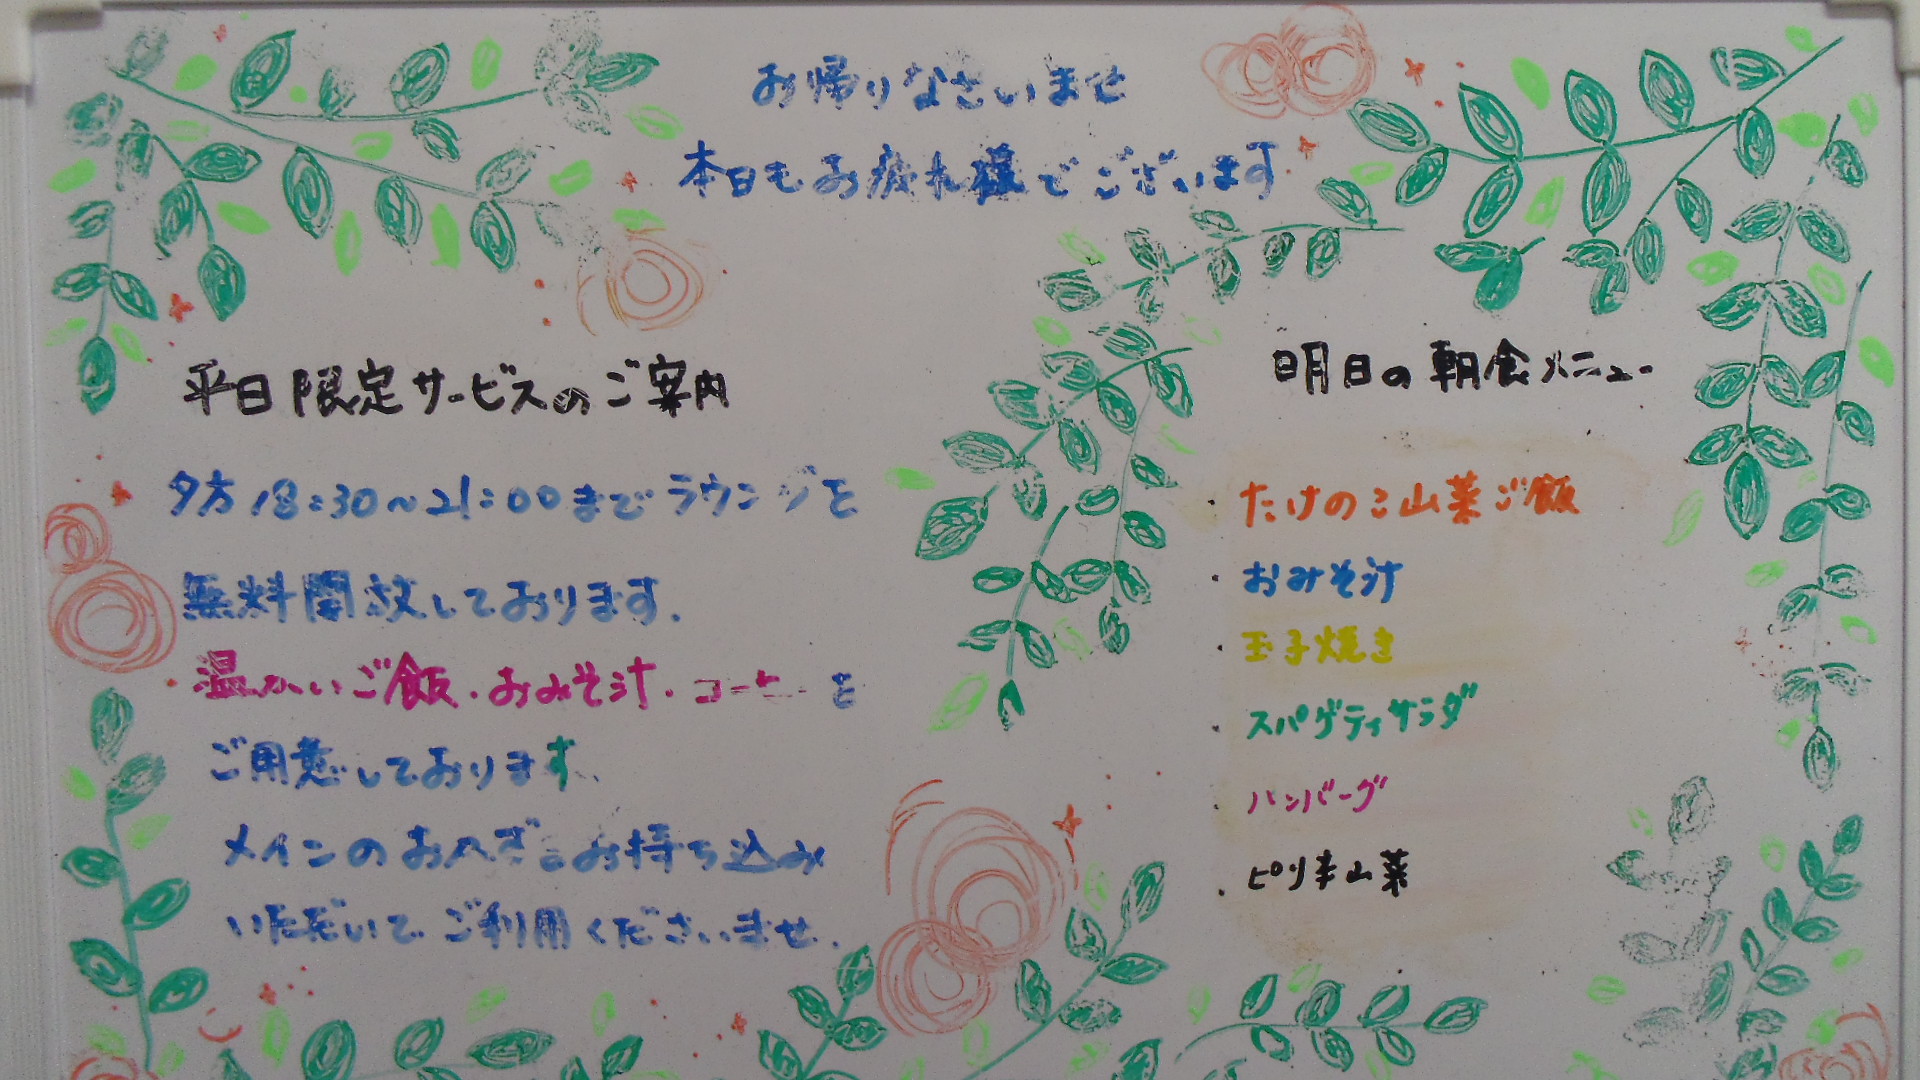 お帰りなさいませ
本日もお疲れ様でございます
平日限定サービスのご案内
夕方18:30～21:00までラウンジを
無料開放しております.
温かいご飯・おみそ汁・コーヒーを
ご用意しております、
メインのおかずをお持ち込み
いただいてご利用くださいませ.
明日の朝食メニュー
・たけのこ山菜ご飯
・おみそ汁
・玉子焼き
・スパゲティサラダ
・ハンバーグ
・ピリ辛山菜